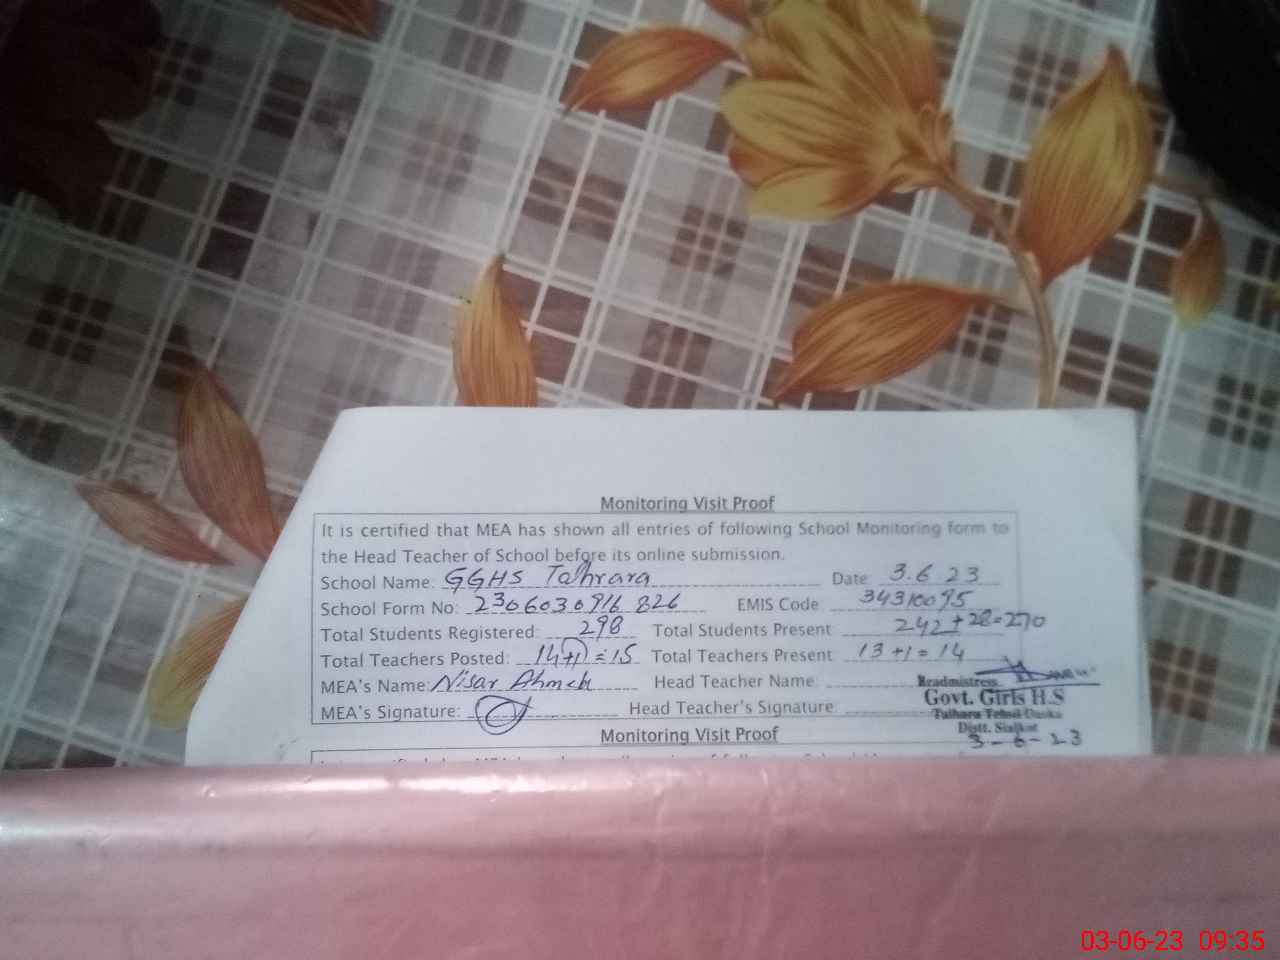 Monitoring Visit Proof
It is certified that MEA has shown all entries of following School Monitoring form to
the Head Teacher of School before its online submission.
School Name: GGHS Tahrara Date 3.6.23
School Form No: 2306030916 826 EMIS Code 34310095
Total Students Registered: 298 Total Students Present 242+28=270
Total Teachers Posted: 14+1=15 Total Teachers Present 13+1=14
MEA's Name: Nisar Ahmed Head Teacher Name:
MEA's Signature: Head Teacher's Signature
Headmistress
Govt. Girls H.S
Talhara Tehsil Daska
Distt. Sialkot
3-6-23
Monitoring Visit Proof
03-06-23 09:35